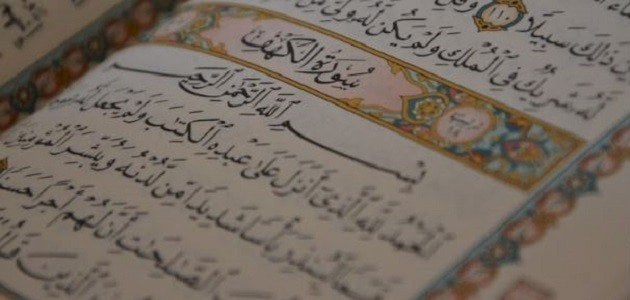 ذَٰلِكَ سَبِيلًا ١١٠ وَقُلِ
لَّهُ شَرِيكٌ فِي الْمُلْكِ وَلَمْ يَكُن لَّهُ وَلِيٌّ
سُورَةُ الْكَهْفِ
بِسْمِ اللَّهِ الرَّحْمَٰنِ الرَّحِيمِ
الْحَمْدُ لِلَّهِ الَّذِي أَنزَلَ عَلَىٰ عَبْدِهِ الْكِتَٰبَ وَلَمْ يَجْعَل لَّهُ
قَيِّمًا لِّيُنذِرَ بَأْسًا شَدِيدًا مِّن لَّدُنْهُ وَيُبَشِّرَ الْمُؤْمِنِينَ
الصَّٰلِحَٰتِ أَنَّ لَهُمْ أَجْرًا حَسَنًا
الَّذِينَ قَالُوا